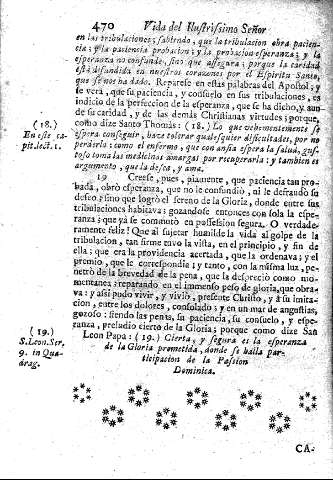 470 Vida del Ilustrissimo Señor
en las tribulaciones; sabiendo, que la tribulacion obra pacien-
cia; y la paciencia probacion; y la probacion esperanza; y la
esperanza no confunde, sino que assegura; porque la caridad
està difundida en nuestros corazones por el Espiritu Santo,
que se nos ha dado. Reparese en estas palabras del Apostol; y
se verà, que su paciencia, y consuelo en sus tribulaciones, es
indicio de la perfeccion de la esperanza, que se ha dicho, y aun
de su caridad, y de las demàs Christianas virtudes; porque,
como dize Santo Thomàs: (18.) Lo que vehementemente se
espera conseguir, haze tolerar qualesquier dificultades, por no
perderlo: como el enfermo, que con ansia espera la salud, gus-
toso toma las medicinas amargas por recuperarla: y tambien es
argumento, que la desea, y ama.
(18.)
En este ca-
pit. lect. 1.
19 Creese, pues, piamente, que paciencia tan pro-
bada, obrò esperanza, que no le confundiò, ni le defraudò su
deseo; sino que logrò el sereno de la Gloria, donde entre sus
tribulaciones habitava: gozandose entonces con sola la espe-
ranza; que yà se comutò en possession segura. O verdade-
ramente feliz! Que al sujetar humilde la vida al golpe de la
tribulacion, tan firme tuvo la vista, en el principio, y fin de
ella; que era la providencia acertada, que la ordenava; y el
premio, que le correspondia: y tanto, con la misma luz, pe-
netrò de la brevedad de la pena, que la despreciò como mo-
mentanea; reparando en el immenso peso de gloria, que obra-
va: y assi pudo vivir, y viviò, presente Christo, y à su imita-
cion, entre los dolores, consolado; y en un mar de angustias,
gozoso: siendo las penas, su paciencia, su consuelo, y espe-
ranza, preludio cierto de la Gloria; porque como dize San
Leon Papa: (19.) Cierta, y segura es la esperanza
de la Gloria prometida, donde se halla par-
ticipacion de la Passion
Dominica.
(19.)
S. Leon. Ser.
9. in Qua-
drag.
CA-